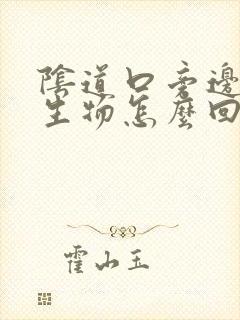 陰道口旁邊
生物怎麼回
霍小玉